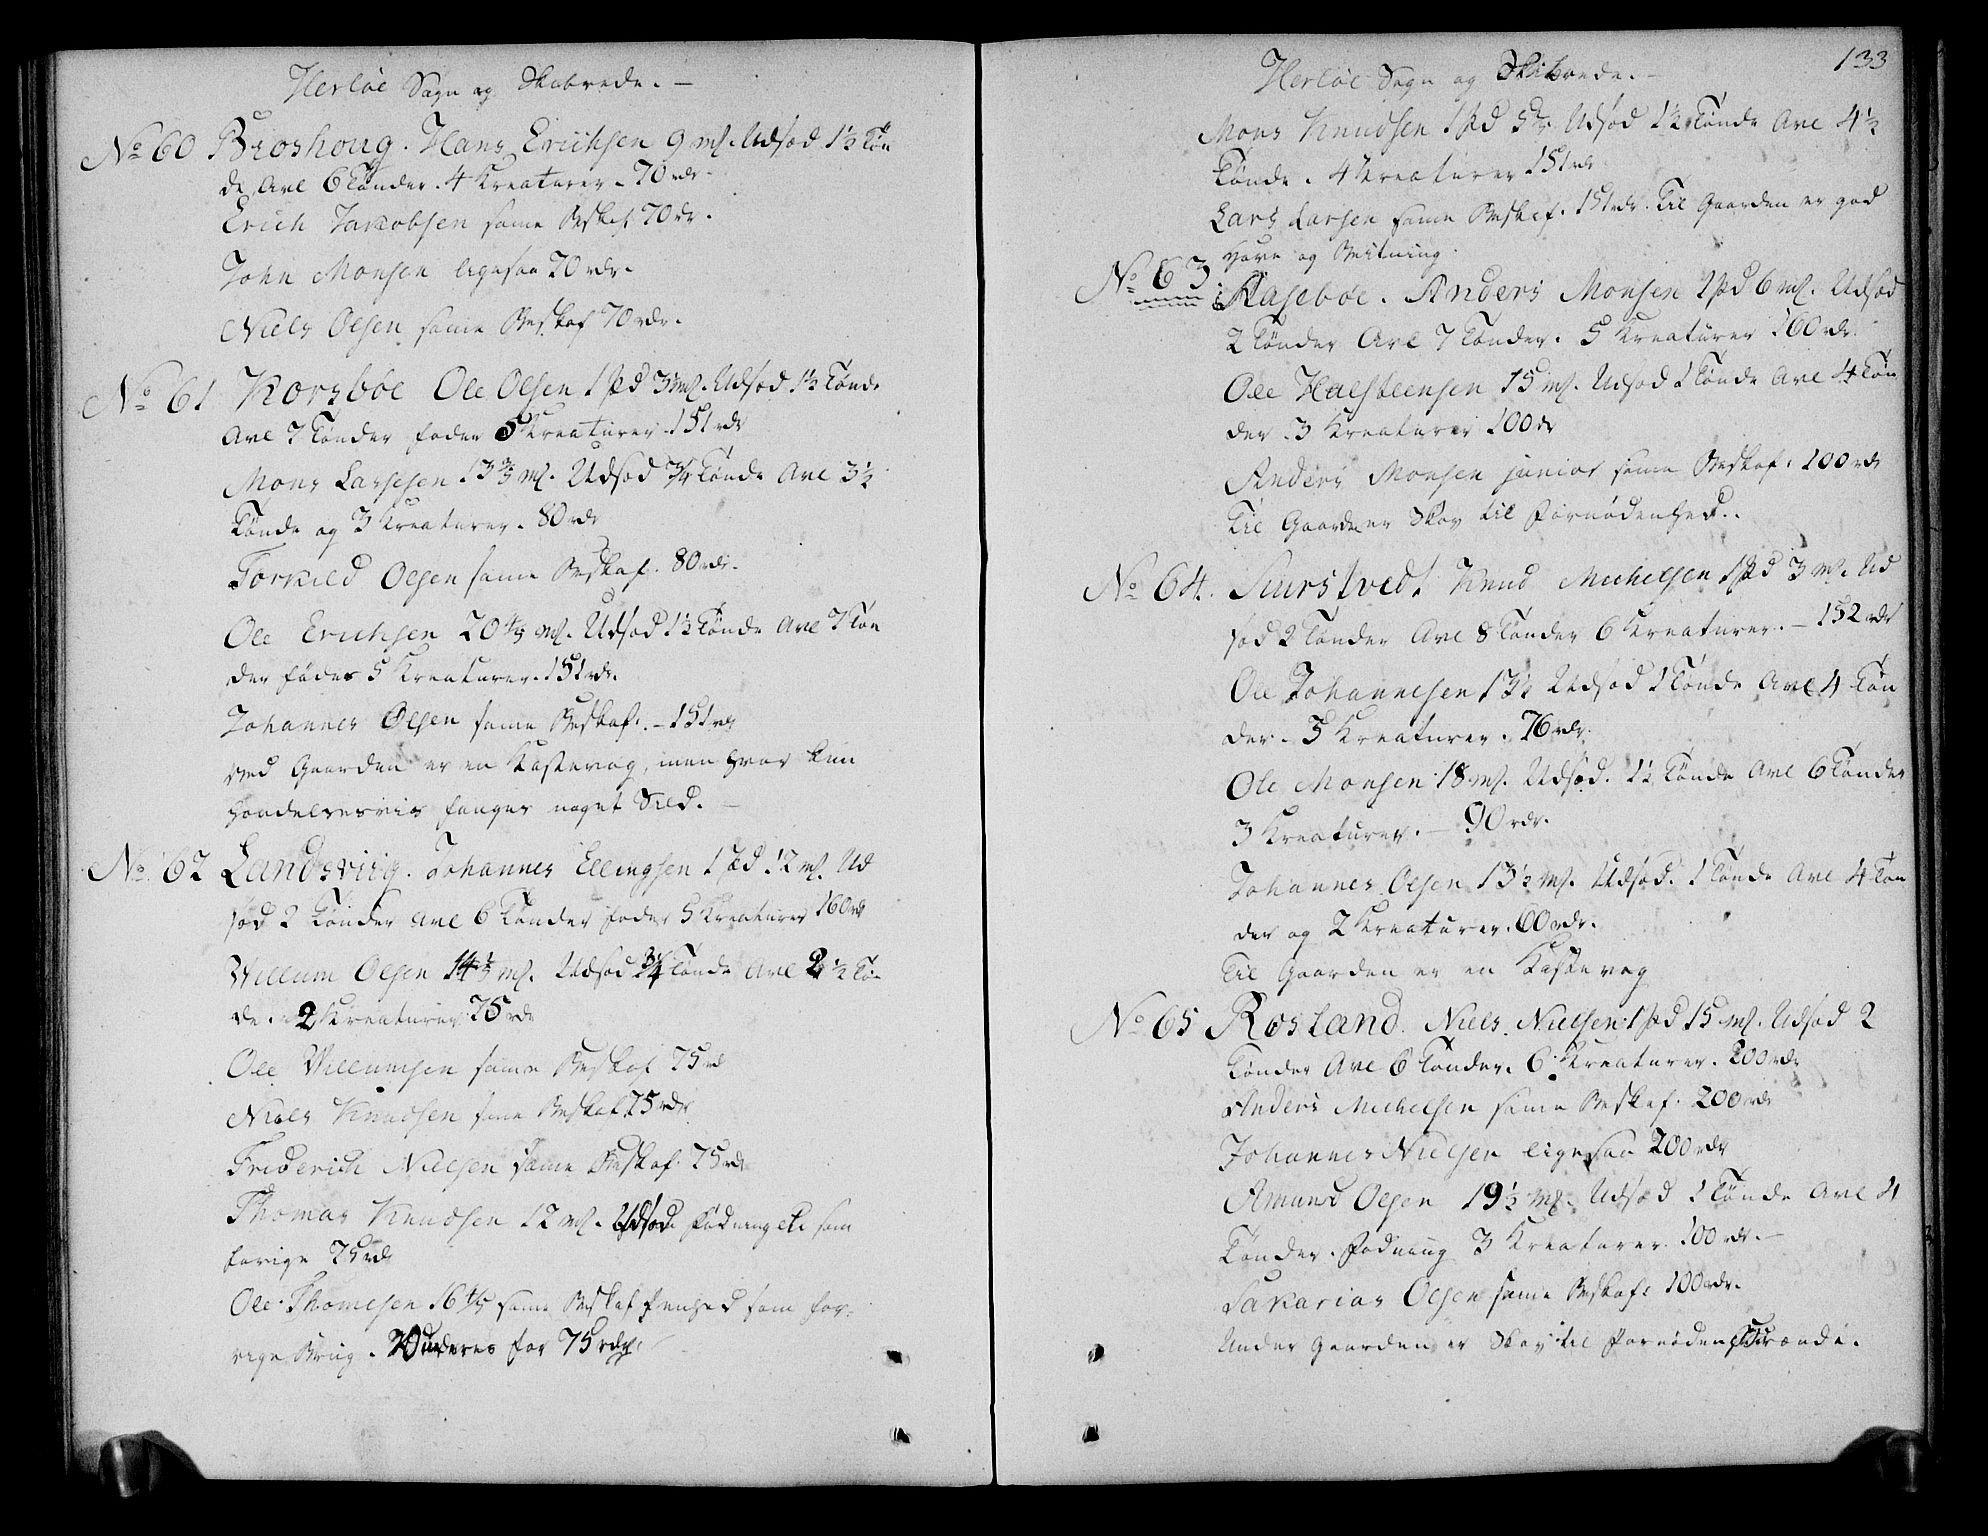 Herløe Sogn og Skibrede. —
No 60 Broshoug. Hans Erichsen 9 mℓ. Udsæd 1½ Tøn
de, Avl 6 Tønder. 4 Kreaturer. 70 rdr.
Erich Jacobsen same Beskaf. 70 dr.
John Monsen ligesaa 70 rdr.
Niels Olsen same Beskaf. 70 rdr.
No 61 Korsbøe Ole Olsen 1 pd 3 mℓ. Udsæd 1½ Tønde
Avl 7 Tønder føder 5 Kreaturer 151 rdr
Mons Larssen 13 mℓ. Udsæd ¾ Tønde Avl 3½
Tønde og 3 Kreaturer. 80 rdr
Torkild Olsen same Beskaf. 80 rdr.
Ole Erichsen 20 mℓ. Udsæd 1½ Tønde Avl 7 Tøn
der føder 5 Kreaturer. 151 rdr.
Johannes Olsen same Beskaf. — 151 rdr
Ved Gaarden er en Kastevog, men hvor kun
hændelsesvis fanges noget Sild. —
No 62 Landsviig. Johannes Ellingsen 1 pd 12 mℓ. Ud
sæd 2 Tønder avl 6 Tønder føder 5 Kreaturer 160 rdr
Willum Olsen 14⅓ mℓ. Udsæd ¾ Tønde Avl 2½ Tøn
de. 2 Kreaturer 75 rdr
Ole Willumsen same Beskaf 75 rd
Niels Knudsen same Beskaf 75 rdr
Friderich Nielsen same Beskaf. 75 rdr
Thomas Knudsen 12 mℓ. Udsæd Fødning etc som
forige 75 rdr
Ole Thomesen 16⅘ same Beskaffenhed som for-
rige Brug. Vurderes for 75 rdr.
Herløe Sogn og Skibrede. — 133
Mons Knudsen 1 pd Udsæd 1½ Tønde Avl 4½
Tønde. 4 Kreaturer 151 rdr
Lars Larsen same Beskaf. 151 rdr. Til Gaarden er god
Havn og Beitning.
No 63. Kasebøe. Anders Monsen 1 pd 6 mℓ. Udsæd
2 Tønder Avl 7 Tønder. 5 Kreaturer 160 rdr.
Ole Halsteensen 15 mℓ. Udsæd 1 Tønde Avl 4 Tøn
der. 3 Kreaturer 100 dr
Anders Monsen junior same Beskaf. 100 rdr
Til Gaarden er Skov til Fornødenhed.
No 64. Knud Michelsen 1 pd 3 mℓ. Ud
sæd 2 Tønder Avl 8 Tønder 6 Kreaturer. — 152 rdr
Ole Johannesen 13½ Udsæd 1 Tønde Avl 4 Tøn
der. 3 Kreaturer. 76 rdr.
Ole Monsen 18 mℓ. Udsæd. 1½ Tønde Avl 6 Tønder
3 Kreaturer. — 90 rdr.
Johannes Olsen 13½ mℓ. Udsæd. 1 Tønde Avl 4 Tøn
der og 2 Kreaturer. 60 rdr.
Til Gaarden er en Kastevog
No 65 Rosland. Niels Nielsen 1 pd 15 mℓ. Udsæd 2
Tønder Avl 6 Tønder. 6 Kreaturer. 200 rdr
Anders Michelsen same Beskaf. 200 rdr
Johannes Nielsen ligesaa 200 rdr
Amund Olsen 19½ mℓ. Udsæd 1 Tønde Avl 4
Tønder. Fødning 3 Kreaturer. 100 rdr. —
Sakarias Olsen same Beskaf. 100 rdr.
Under Gaarden er Skov til Fornøden Brænde.